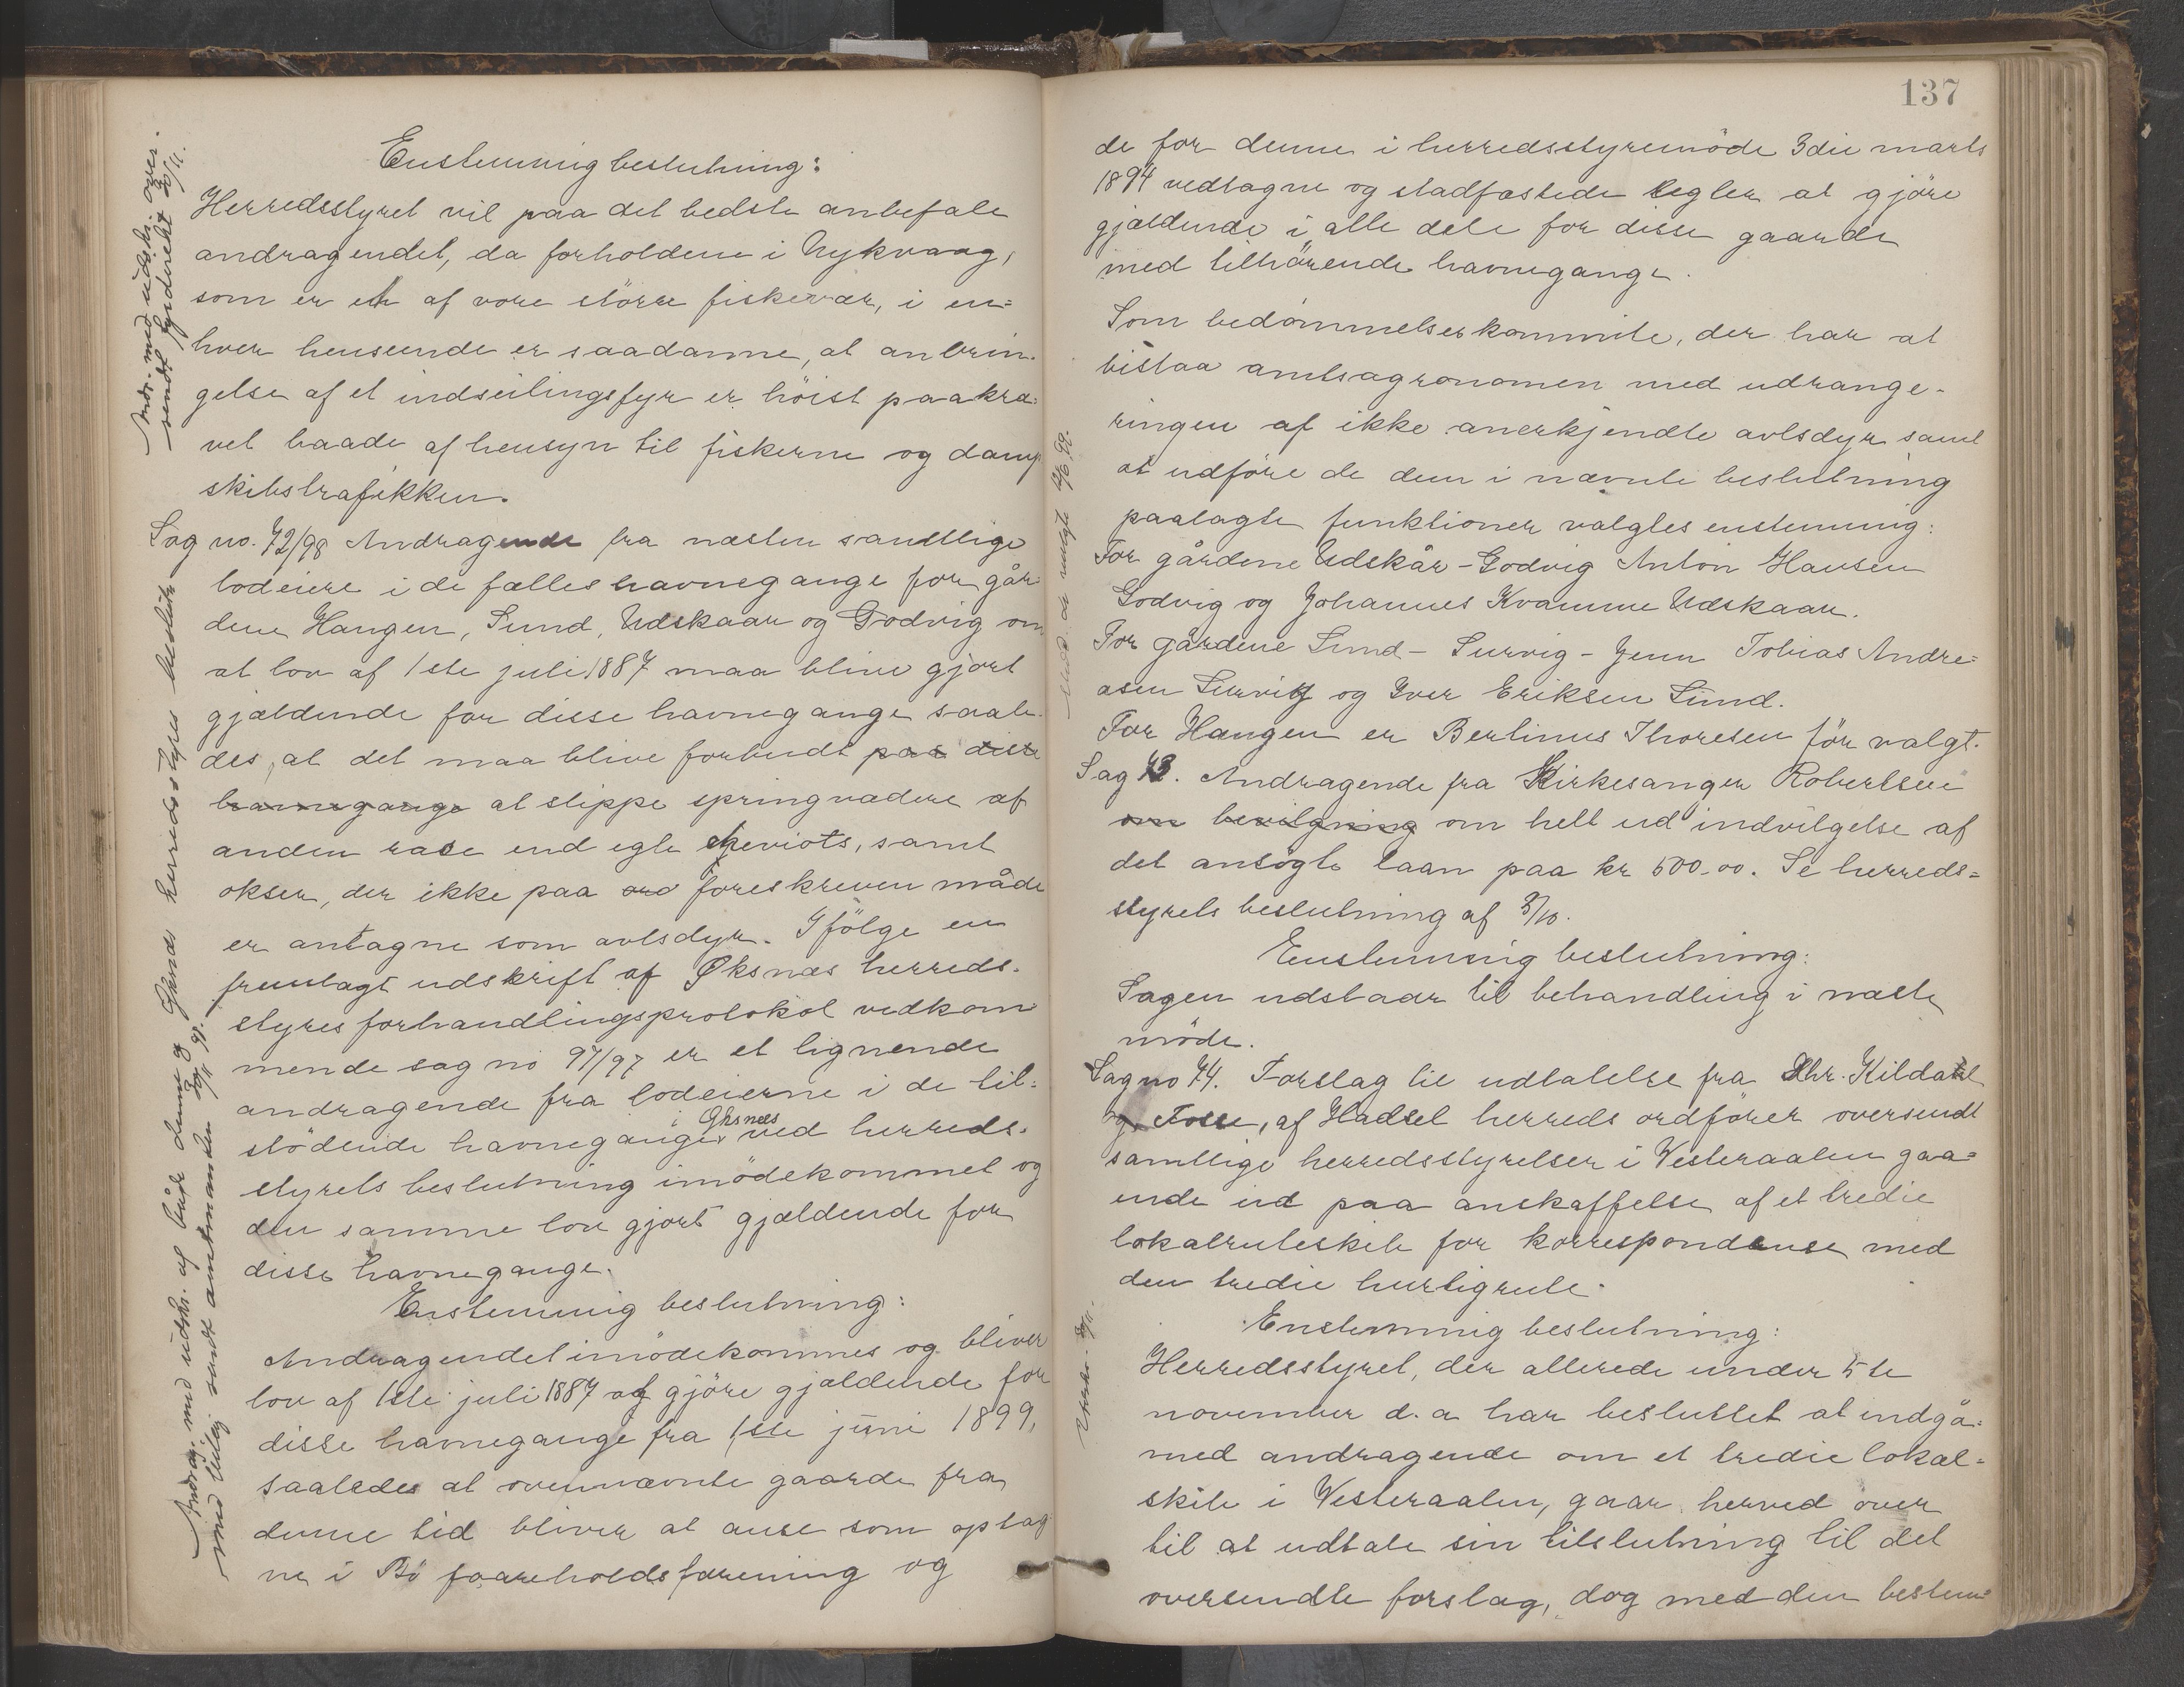 Enstemmig beslutning:
Herredsstyret vil paa det bedste anbefale
andragendet, da forholdene i Nykvaag,
som er et af vore större fiskevær, i en=
hver henseende er saadanne, at anbrin-
gelse af et indseilingsfyr er höist paakræ-
vet baade af hensyn til fiskerne og damp
skibstrafikken.
Sag no. 72/98 Andragende fra næsten samtlige
lodeiere i de fælles havnegange for går-
dene Haugen, Sund, Udskaar og Godvig om
at lov af 1ste juli 1887 maa blive gjort
gjældende for disse havnegange saale-
des, at det maa blive forbudt paa disse
havnegange at slippe springvædere af
anden race end egte cheviots, samt
okser, der ikke paa foreskreven måde
er antagne som avlsdyr. Ifölge en
fremlagt udskrift af Øksnæs herreds-
styres forhandlingsprotokol vedkom
mende sag no 97/97 er et lignende
andragende fra lodeierne i de til-
i Øksnæs
stödende havnegange ved herreds-
styrets beslutning imödekommet og
den samme lov gjort gjældende for
disse havnegange.
Enstemmig beslutning:
Andragendet imödekommes og bliver
lov af 1ste juli 1887 at gjöre gjældende for
disse havnegange fra 1ste juni 1899,
saaledes at ovennævnte gaarde fra
denne tid bliver at anse som optag
ne i Bö faareholdsforening og
Andr. med udskr. over-
sendt fyrdirektör 20/11.
Andrag. med udskr. af både denne og Øksnæs herredsstyres beslutn.
med bilag sendt amtmanden 20/11 98.
137
de for denne i herredsstyremöde 3die marts
1894 vedtagne og stadfæstede regler at gjöre
gjældende i alle dele for disse gaarde
med tilhörende havnegange.
Som bedömmelseskommite, der har at
bistaa amtsagronomen med udrange-
ringen af ikke anerkjendte avlsdyr samt
at udföre de dem i nævnte beslutning
paalagte funktioner valgtes enstemmig:
For gårdene Udskår-Godvig Anton Hansen
Godvig og Johannes Kvamme Udskaar.
For gårdene Sund - Survig - Jenn Tobias Andre=
asen Survig og Iver Eriksen Sund.
For Haugen er Berlinus Thoresen för valgt.
Sag 73. Andragende fra Kirkesanger Robertsen
om bevilgning om helt ud indvilgelse af
det ansögte laan paa kr 500.00. Se herreds=
styrets beslutning af 3/10.
Enstemmig beslutning:
Sagen udstaar til behandling i næste
möde.
Sag no 74. Forslag til udtalelse fra Dhr. Kildahl
og Fosse, af Hadsel herreds ordförer oversendt
samtlige herredsstyrelser i Vesteraalen gaa=
ende ud paa anskaffelse af et tredie
lokalruteskib for korrespondense med
den tredie hurtigrute.
Enstemmig beslutning:
Herredsstyret, der allerede under 5te
november d.a har besluttet at indgå-
med andragende om et tredie lokal-
skib i Vesteraalen, gaar herved over
til at udtale sin tilslutning til det
oversendte forslag, dog med den bestem=